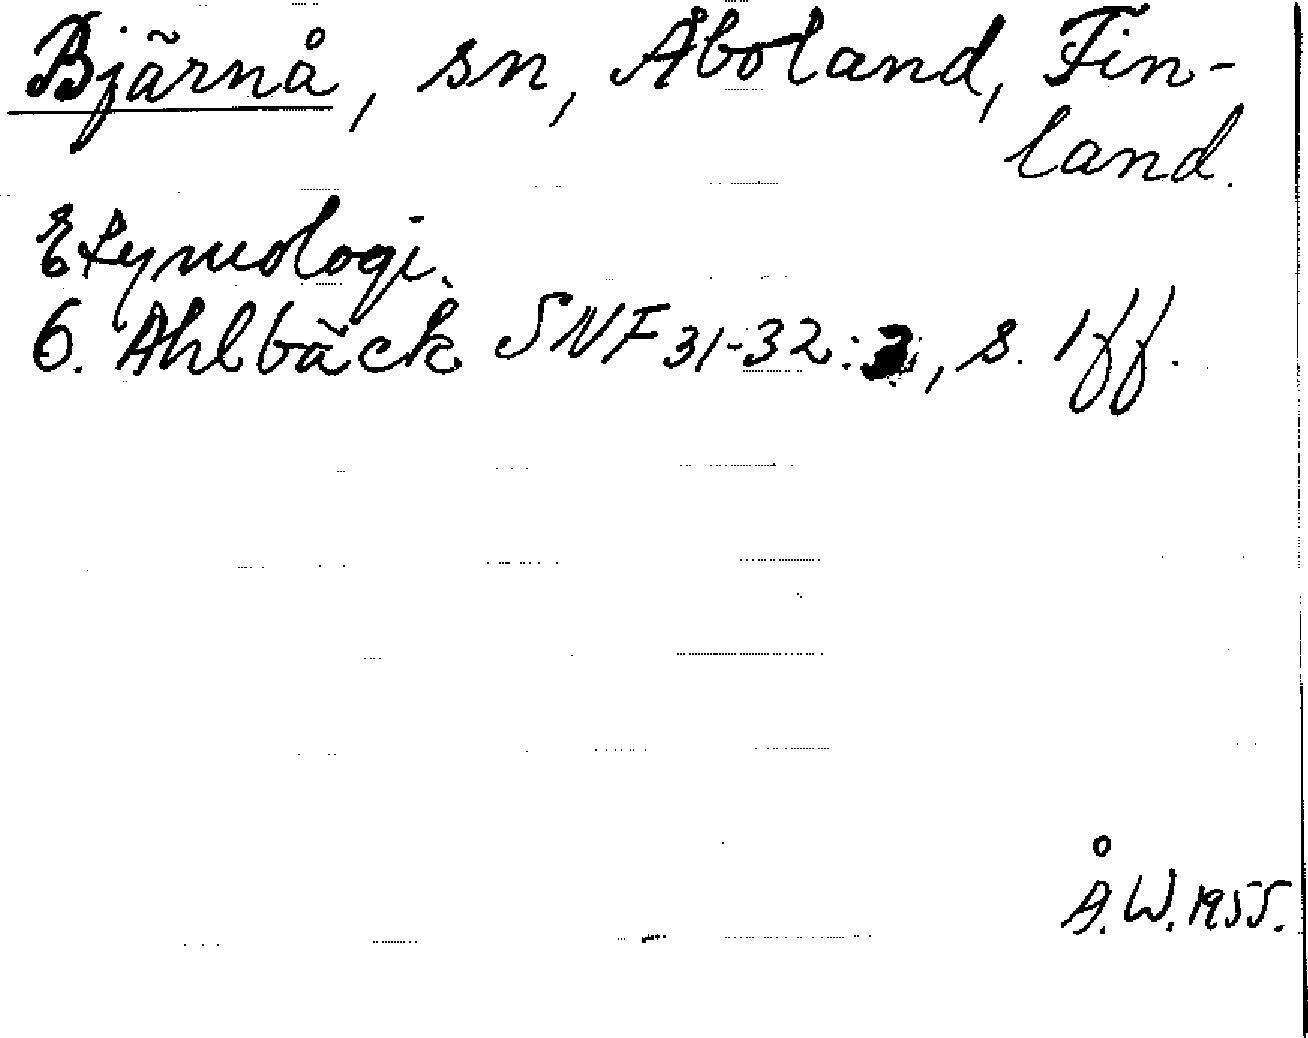 Bjärnå, sn, Åboland, Fin-
land.
Etymologi.
O. Ahlbäck SNF 31-32:2, s. 1ff.
Å.W. 1955.